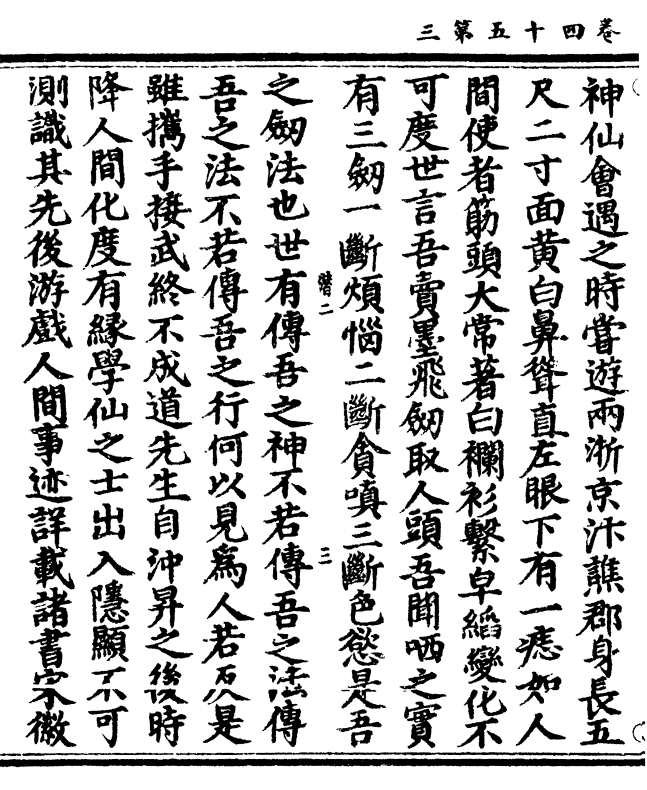 卷四十五第三
神仙會遇之時嘗遊兩浙京汴譙郡身長五
尺二寸面黃白鼻聳直左眼下有一痣如人
間使者筋頭大常著白襴衫繫皁絛變化不
可度世言吾賣墨飛劒取人頭吾聞哂之實
有三劒一斷煩惱二斷貪嗔三斷色慾是吾
之劒法也世有傳吾之神不若傳吾之法傳
吾之法不若傳吾之行何以見爲人若反是
雖攜手接武終不成道先生自沖昇之後時
降人間化度有緣學仙之士出入隱顯不可
測識其先後游戲人間事迹詳載諸書宋徽
二
三